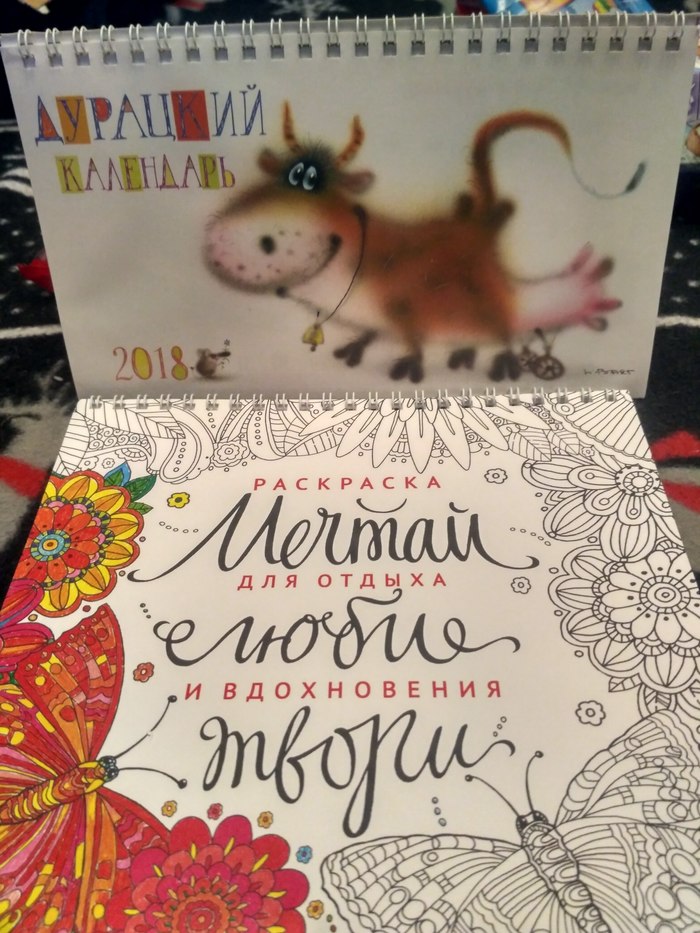 ДУРАЦКИЙ
КАЛЕНДАРЬ
2018
РАСКРАСКА
Мечтай
ДЛЯ ОТДЫХА
люби
И ВДОХНОВЕНИЯ
твори